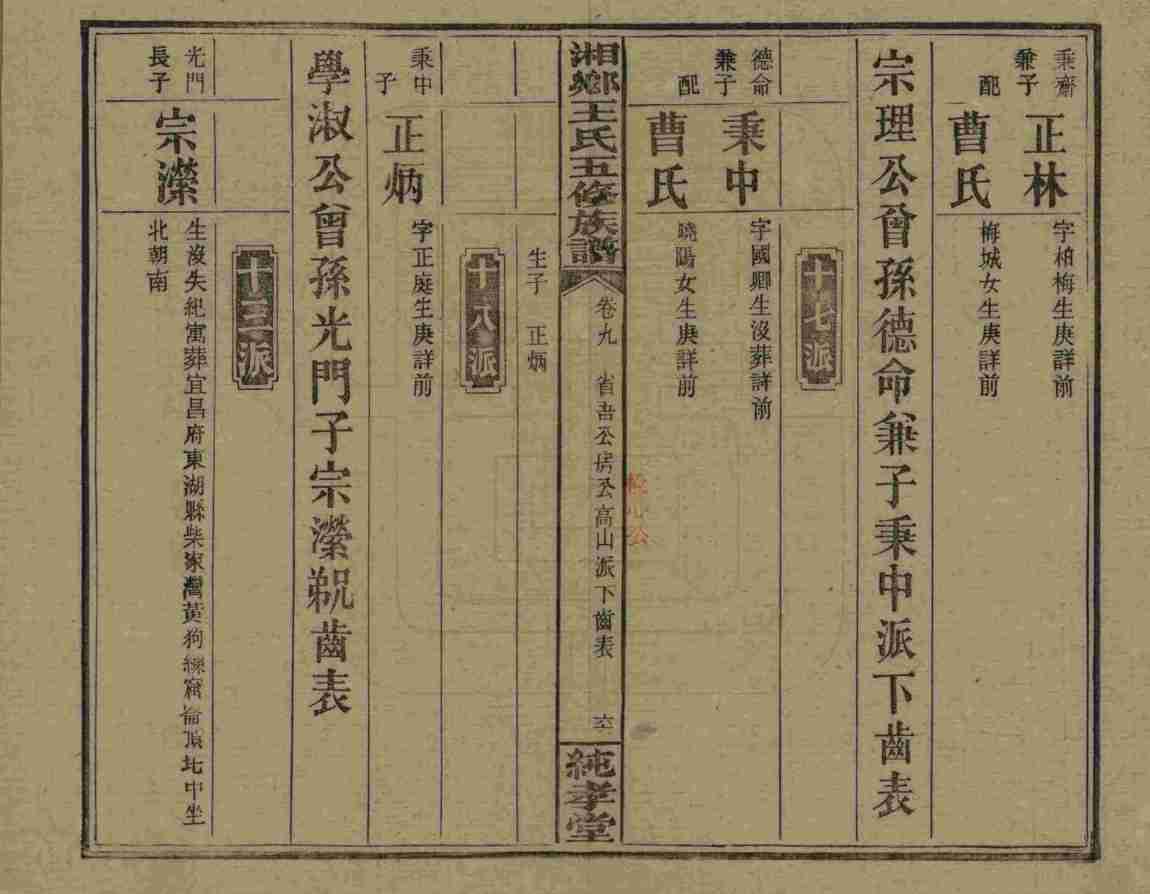 秉齋
兼子
正林
字柏梅生庚詳前
配
曹氏
梅城女生庚詳前
宗理公曾孫德命兼子秉中派下齒表
十七派
德命
兼子
秉中
字國卿生沒葬詳前
配
曹氏
曉陽女生庚詳前
湘鄉王氏五修族譜
卷九
省吾公房公高山派下齒表
純孝堂
生子 正炳
十八派
秉中
子
正炳
字正庭生庚詳前
學淑公曾孫光門子宗濴派齒表
十三派
光門
長子
宗濴
生沒失紀寓葬宜昌府東湖縣柴家灣黃狗頂坐
北朝南